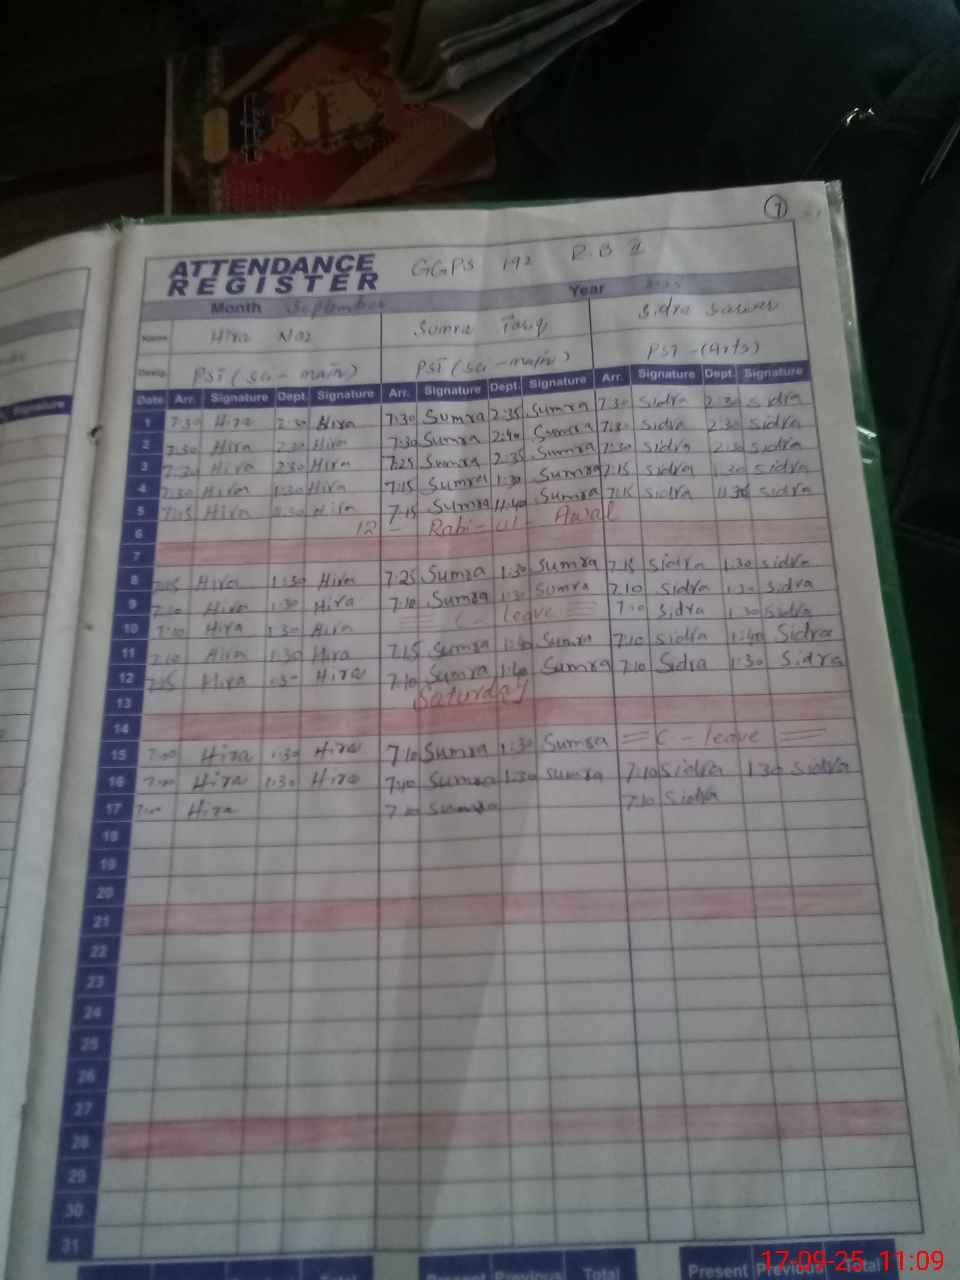 7
ATTENDANCE REGISTER GGPS 192 R.B
Month September Year
Name Hira Naz Sumra Tariq Sidra Sarwar
Desig. PST (sci-math) PST (sci-math) PST-(Arts)
Signature
Date Arr. Signature Dept. Signature Arr. Signature Dept. Signature Arr. Signature Dept. Signature
1 7:30 Hira 2:30 Hira 7:30 Sumra 2:35 Sumra 7:30 Sidra 2:30 Sidra
2 7:30 Hira 2:30 Hira 7:30 Sumra 2:40 Sumra 7:30 Sidra 2:30 Sidra
3 7:30 Hira 2:30 Hira 7:25 Sumra 2:35 Sumra 7:30 Sidra 2:30 Sidra
4 7:30 Hira 1:30 Hira 7:15 Sumra 1:30 Sumra 7:15 Sidra 1:30 Sidra
5 7:15 Hira 11:30 Hira 7:15 Sumra 11:40 Sumra 7:15 Sidra 11:30 Sidra
6 12 - Rabi-ul-Awal
7
8 7:15 Hira 1:30 Hira 7:25 Sumra 1:30 Sumra 7:15 Sidra 1:30 Sidra
9 7:10 Hira 1:30 Hira 7:10 Sumra 1:30 Sumra 7:10 Sidra 1:30 Sidra
10 7:10 Hira 1:30 Hira C-leave 7:10 Sidra 1:30 Sidra
11 7:10 Hira 1:30 Hira 7:15 Sumra 1:40 Sumra 7:10 Sidra 1:40 Sidra
12 7:15 Hira 1:30 Hira 7:10 Sumra 1:40 Sumra 7:10 Sidra 1:30 Sidra
13 Saturday
14
15 7:00 Hira 1:30 Hira 7:10 Sumra 1:30 Sumra C-leave
16 7:00 Hira 1:30 Hira 7:10 Sumra 1:30 Sumra 7:10 Sidra 1:30 Sidra
17 7:00 Hira 7:10 Sumra 7:10 Sidra
18
19
20
21
22
23
24
25
26
27
28
29
30
31
Total Present Previous Total Present Previous Total
17-09-25 11:09